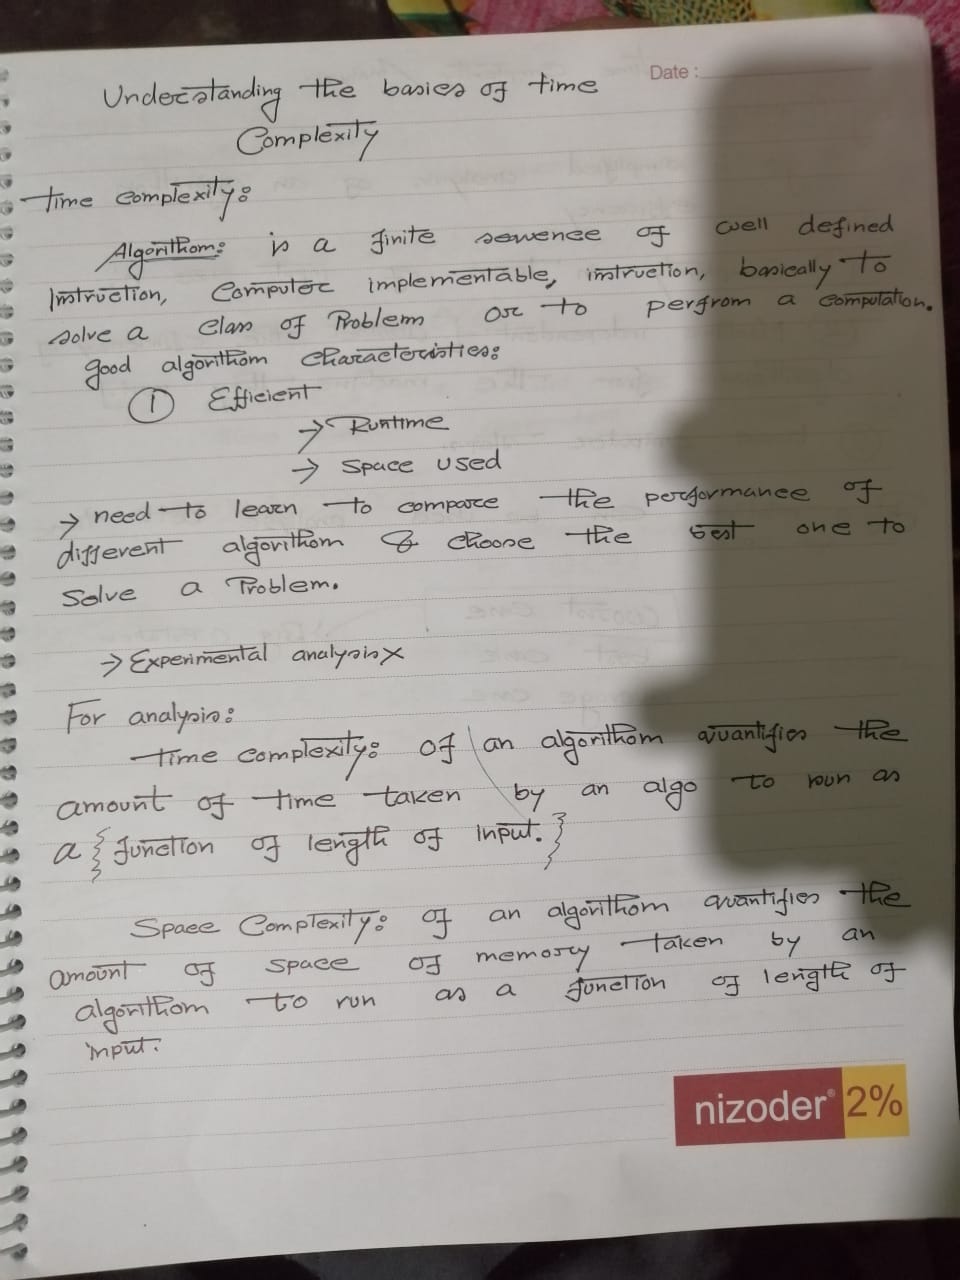 Date :
Understanding the basics of time
Complexity
Time complexity:
Algorithom: is a finite sewence of well defined
Instruction, Computer implementable, instruction, basically to
solve a class of Problem or to pergrom a computation.
good algorithom characteristics:
① Efficient
→ Runtime
→ Space used
→ need to learn to compare the performance of
different algorithom & choose the best one to
solve a Problem.
→ Experimental analysis x
For analysis:
Time complexity: of an algorithom quantifies the
amount of time taken by an algo to run as
a { function of length of input. }
Space Complexity: of an algorithom quantifies the
amount of space of memory taken by an
algorithom to run as a function of length of
input.
nizoder® 2%